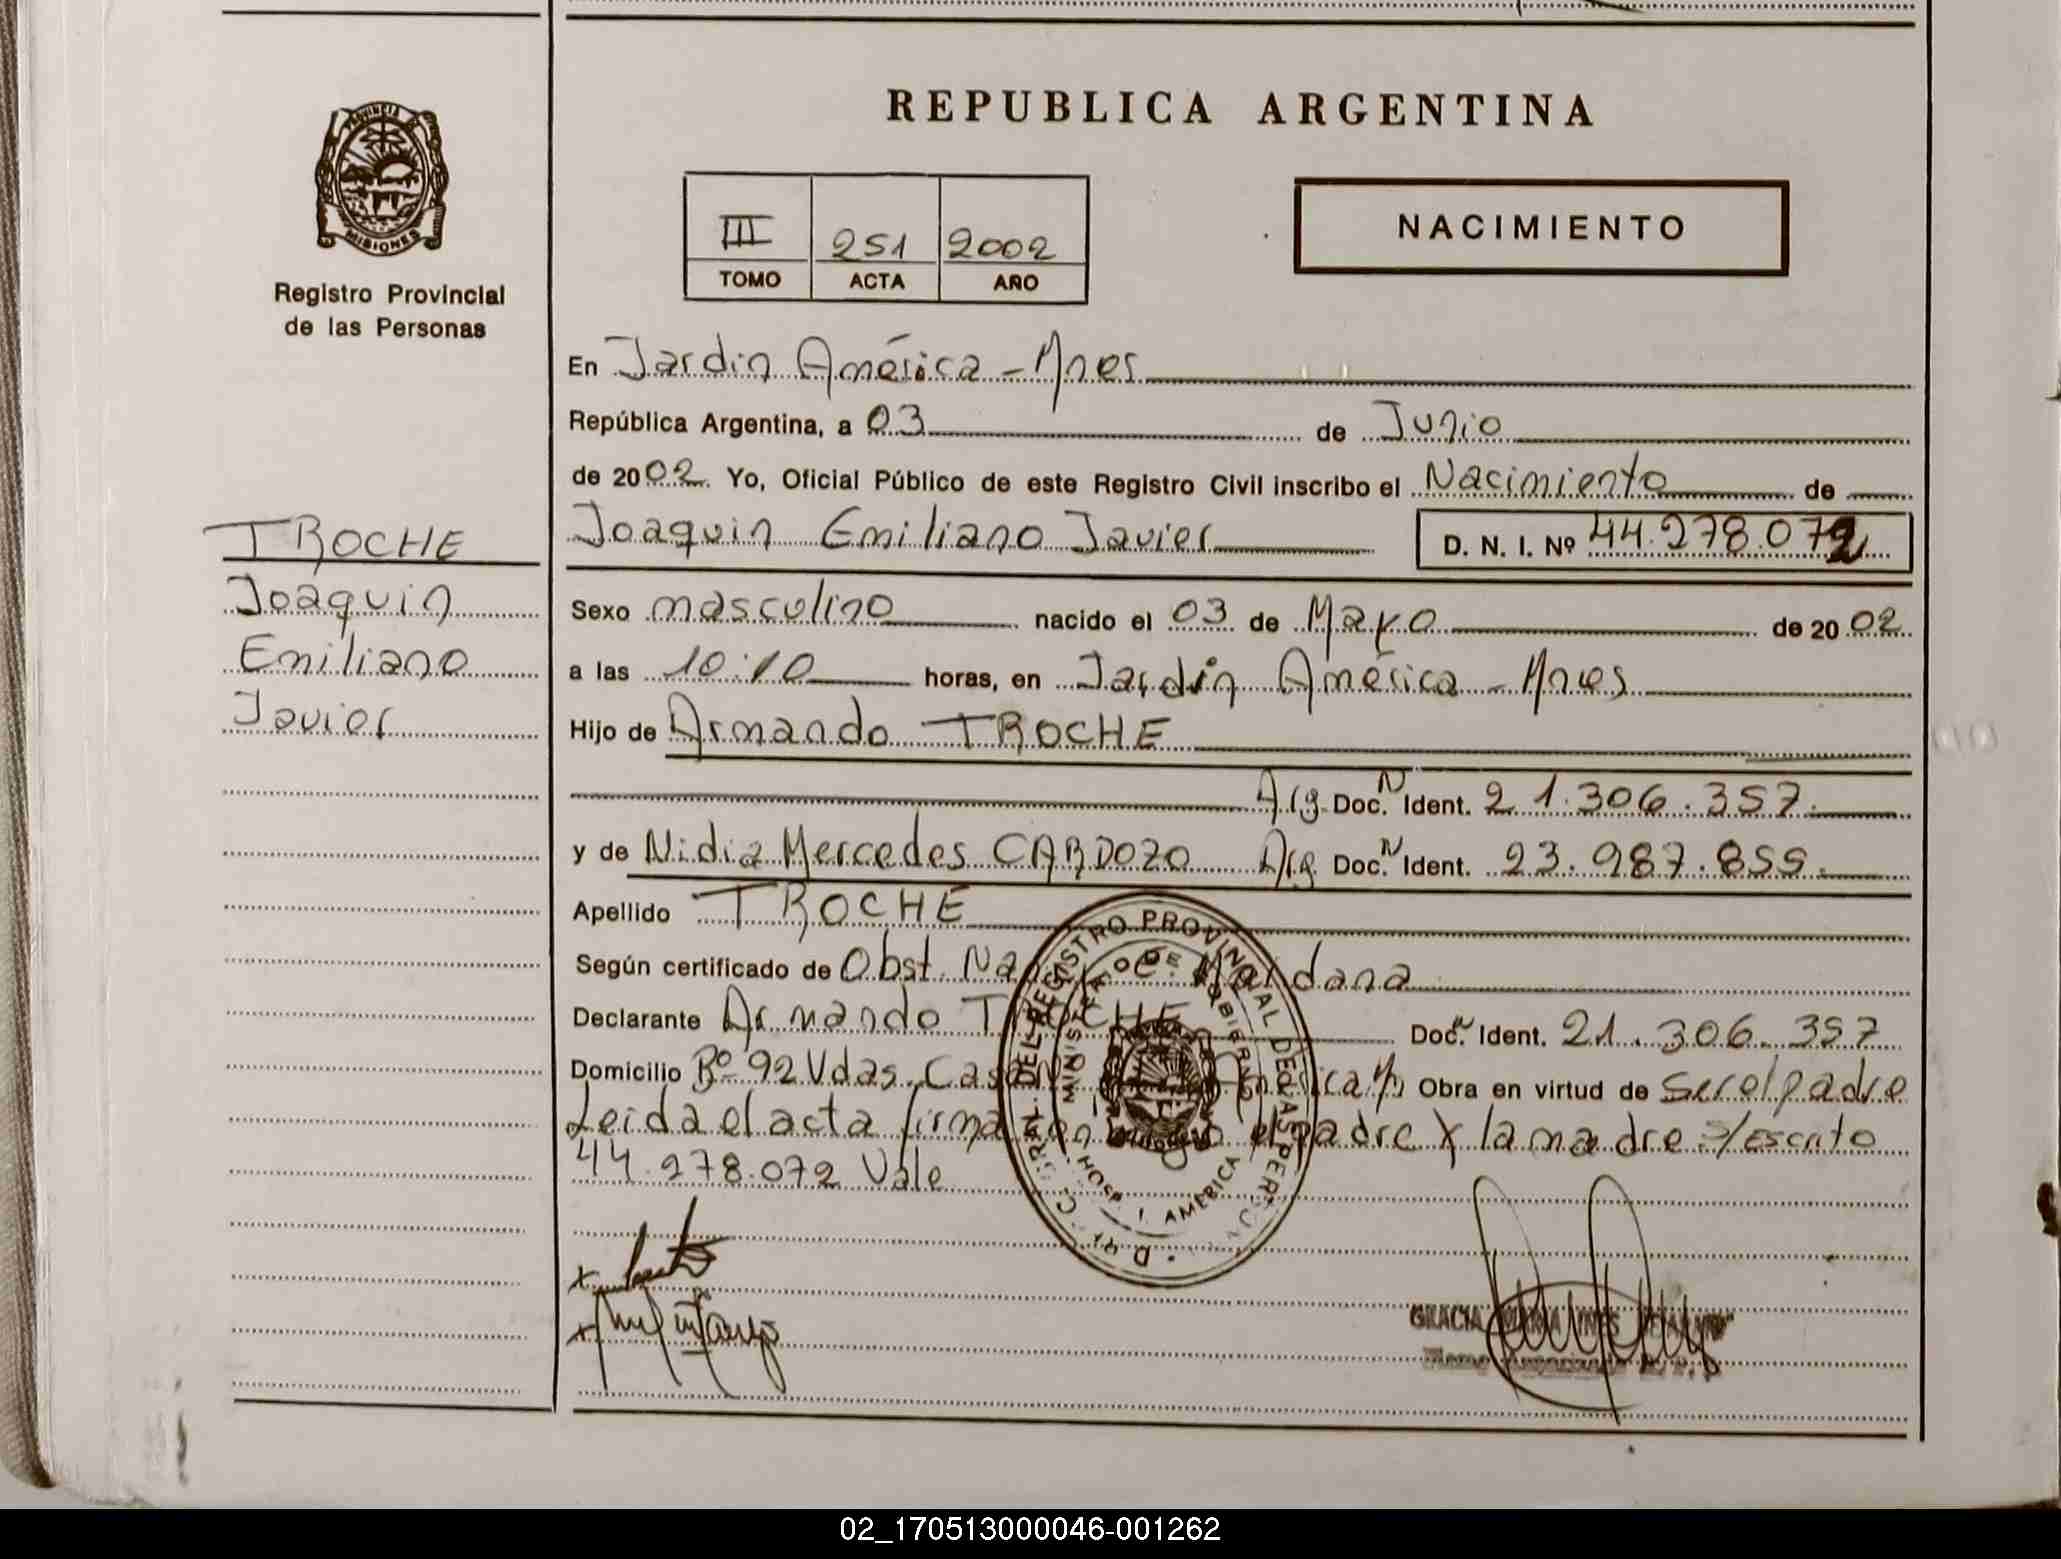 REPUBLICA ARGENTINA
PROVINCIA DE
MISIONES
Registro Provincial
de las Personas
III 251 2002
TOMO ACTA AÑO
NACIMIENTO
En Jardin América - Mnes
República Argentina, a 03 de Junio
de 2002. Yo, Oficial Público de este Registro Civil inscribo el Nacimiento de
Joaquin Emiliano Javier D. N. I. Nº 44.278.072
TROCHE
Joaquin
Emiliano
Javier
Sexo masculino nacido el 03 de Mayo de 2002
a las 10:10 horas, en Jardin América - Mnes
Hijo de Armando TROCHE
Arg. Doc. N Ident. 21.306.357.
y de Nidia Mercedes CARDOZO Arg. Doc. N Ident. 23.987.855.
Apellido TROCHE
Según certificado de Obst. Maidana
Declarante Armando TROCHE Doc. N Ident. 21.306.357
Domicilio Bº 92 Vdas. América Obra en virtud de ser el padre
Leida el acta firman el padre y la madre. S/Escrito
44.278.072 Vale
DEL REGISTRO PROVINCIAL DE LAS PERS
MINISTERIO DE GOBIERNO
AMERICA
GRACIA MARIA INES
02_170513000046-001262